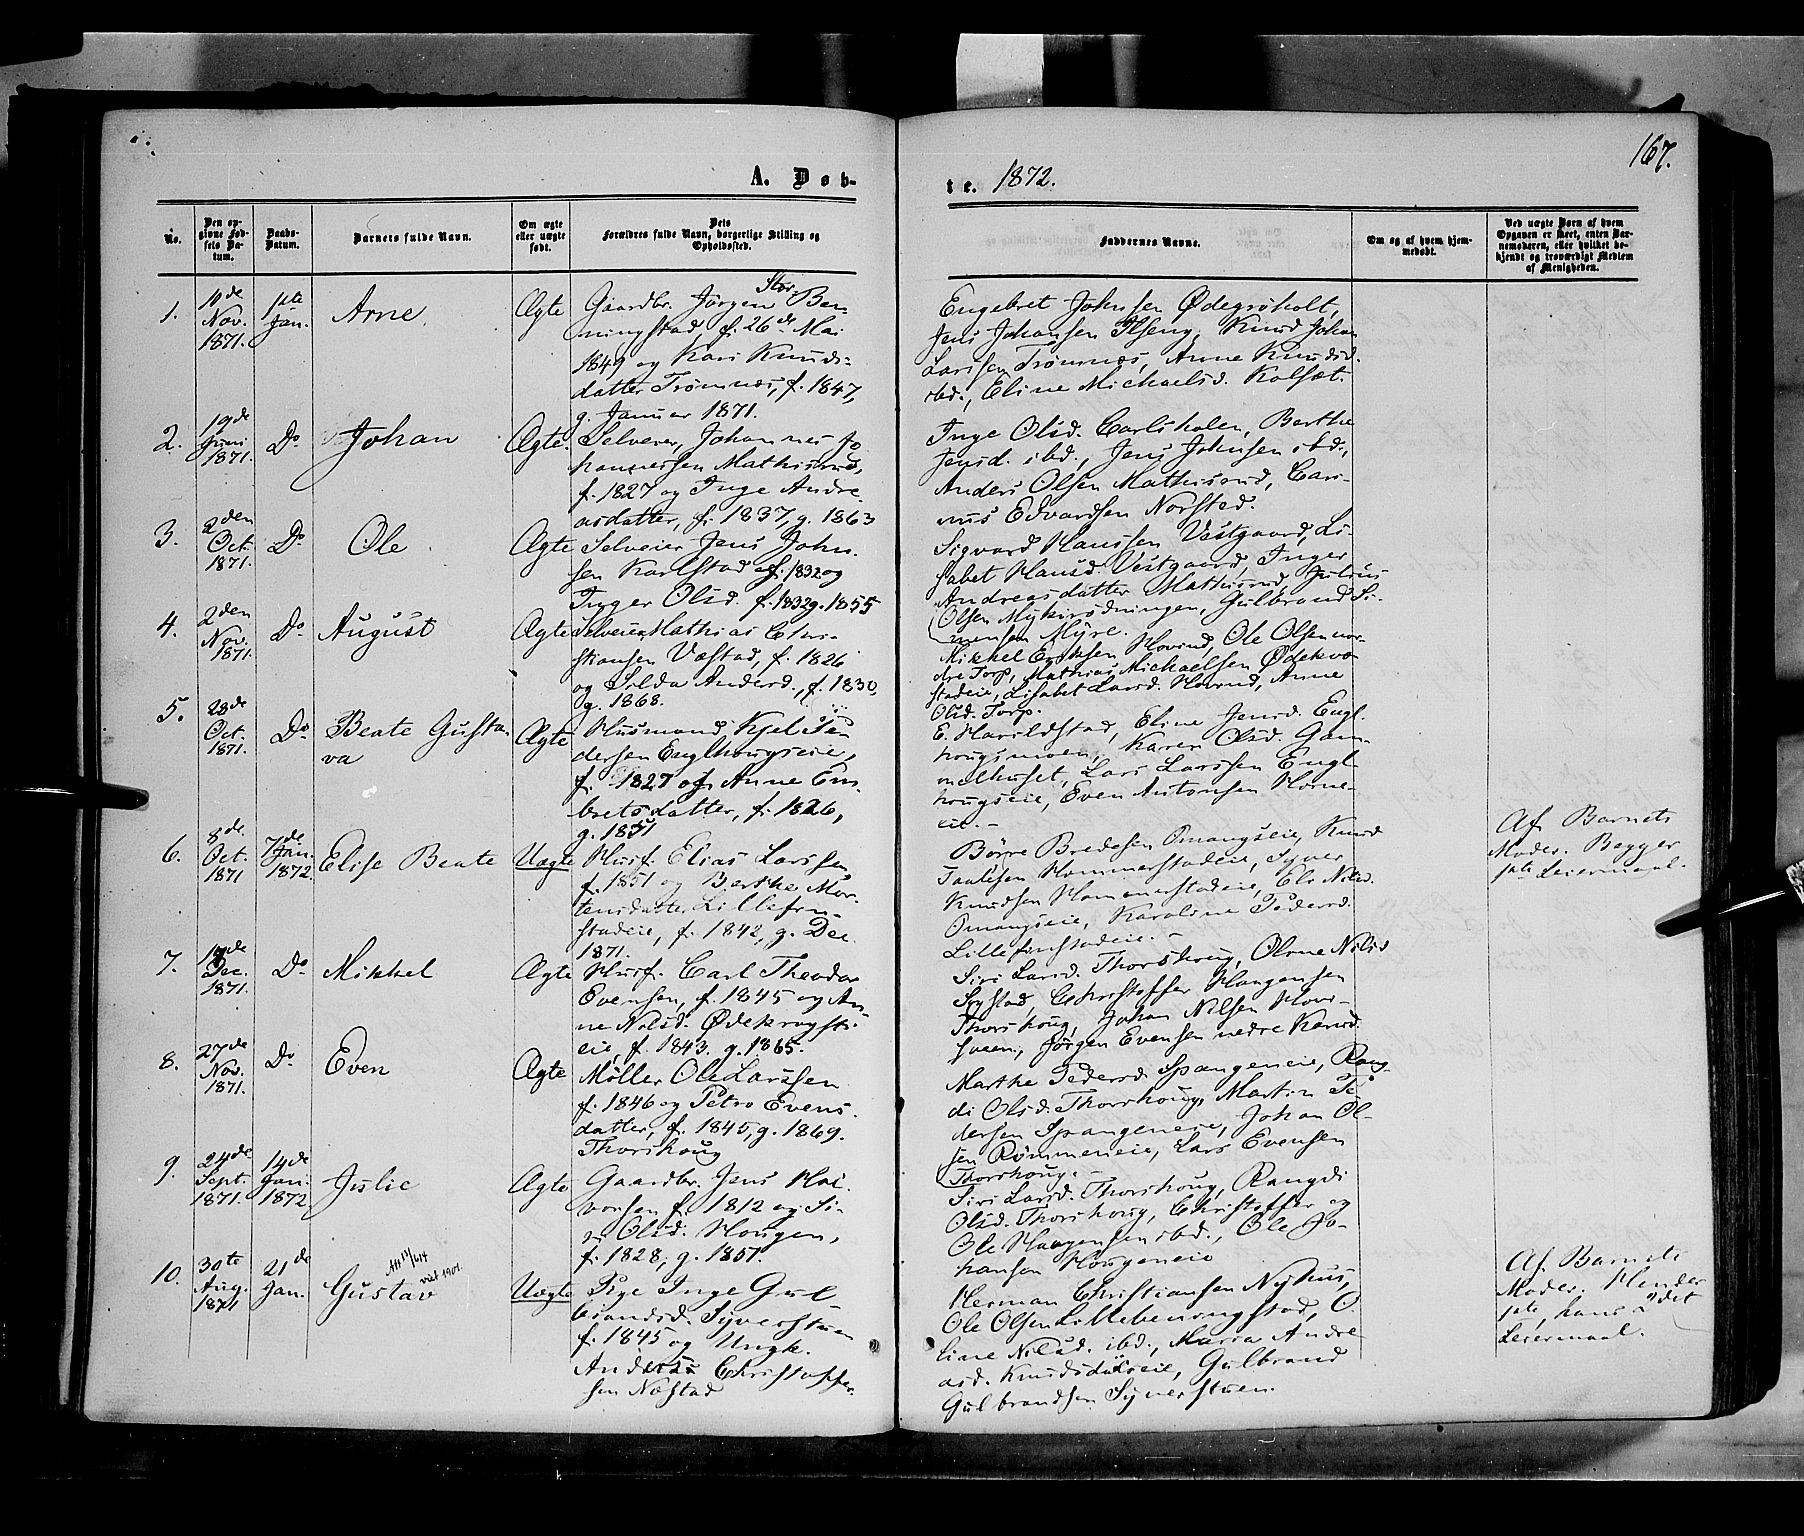 167.
A. Døb-
te. 1872.
No.
Den opgivne Fødsels Datum.
Daabs-Datum.
Barnets fulde Navn.
Om ægte eller uægte født.
Dets Forældres fulde Navn, borgerlige Stilling og Opholdssted.
Faddernes Navne.
Om og af hvem hjemmedøbt.
Ved uægte Børn af hvem Opgaven er skeet, enten Barnemoderen, eller hvilket bekjendt og troværdigt Medlem af Menigheden.
1.
10de Nov. 1871.
1ste Jan.
Arne
Ægte
Gaardbr. Jørgen Stor Ben-
ningstad f. 26de Mai
1849 og Kari Knuds-
datter Trømnæs, f. 1847,
g. Januar 1871.
Engebret Johnsen Ødegrøholt,
Jens Johansen Ilseng, Knud Johan
Larssen Trømnæs, Anne Knudsd.
ibd., Eline Michaelsd. Kolsæt.
2.
19de Juni 1871.
Do
Johan
Ægte.
Selveier, Johannes Jo
hannessen Mathisrud,
f. 1827 og Inge Andre-
asdatter, f. 1837, g. 1863
Inge Olsd. Carlsholen, Berthe
Jensd. ibd., Jens Johnsen ibd.,
Anders Olsen Mathisrud, Cari-
nus Edvardsen Norstad.
3.
2den Oct. 1871.
Do
Ole
Ægte
Selveier Jens John-
sen Karlstad f. 1832 og
Inger Olsd. f. 1832 g. 1855
Sigvard Hanssen Vestgaard, Li-
sabet Hansd. Vestgaard, Inger
Andreasdatter Mathisrud, Julius
Olsen Mykirsdningen, Gulbrand Si-
mensen Myre.
4.
2den Nov. 1871.
Do
August
Ægte
Selveier Mathias Chri-
stiansen Vastad, f. 1826
og Silda Andersd., f. 1830,
g. 1868.
Mikkel Eriksen Hovind, Ole Olsen nor-
dre Torp, Mathias Michaelsen Ødekvo-
stadeie, Lisabet Larsd. Hovind, Anne
Olsd. Torp.
5.
28de Oct. 1871.
Do
Beate Gusta-
va
Ægte
Husmand, Kjel Pe-
dersen Englhougseie,
f. 1827 og Anne Em-
bretsdatter, f. 1826,
g. 1851
E. Harildstad, Eline Jensd. Engl-
hougsmoen, Karen Olsd. Gam-
melhuset, Lars Larssen Engl-
hougseie, Even Antonsen Horne-
eie.-
6.
8de Oct. 1871
7de Jan. 1872.
Elise Beate
Uægte
Husf. Elias Larssen,
f. 1851 og Berthe Mor-
tensdatter Lillefin-
stadeie, f. 1842, g. Dec.
1871.
Børre Bredesen Omangseie, Knud
Paulsen Hommerstadeie, Syver
Knudsen Hommerstadeie, Eli Nilsd.
Omangseie, Karoline Pedersd.
Lillefinstadeie.-
Af Barnets
Moder. Begges
1ste Leiermaal.
7.
17de Dec. 1871.
Do
Mikkel
Ægte
Husf. Carl Theodor
Evensen, f. 1845 og An-
ne Nilsd. Ødekrogsti-
eie, f. 1843. g. 1865.
Siri Larsd. Thorshoug, Olrne Nilsd
Systad, Christoffer Haagensen
Thorshoug, Johan Nilsen Hovi-
sveen, Jørgen Evensen nedre Karud.
8.
27de Nov. 1871.
Do
Even
Ægte
Møller Ole Larssen
f. 1846 og Petra Evens-
datter, f. 1845, g. 1869.
Thorshoug
Marthe Pedersd. Spangeneie, Rang-
di Olsd. Thorshoug, Martin Pe-
dersen Spangeneie, Johan Ol-
sen Rømmeneie, Lars Evensen
Thorshoug.-
9.
24de Sept. 1871.
14de Jan. 1872
Julie
Ægte
Gaardbr. Jens Hal-
vorsen f. 1812 og Si-
ri Olsd. Hougen,
f. 1828, g. 1851.
Siri Larsd. Thorshoug, Rangdi
Olsd. Thorshoug, Christoffer og
Ole Haagensen ibd., Ole Jo-
hansen Hougeneie
10.
30te Aug. 1871
21de Jan.
Att 13/6 14
vid 1901.
Gustav
Uægte
Pige Inge Gul-
brandsd. Syverstuen
f. 1845 og Ungk.
Anders Christoffer-
sen Næstad
Herman Christiansen Nyhus,
Ole Olsen Lillebenningstad, O-
line Nilsd. ibd., Maria Andre-
asd. Knudsdalseie, Gulbrand
Gulbrandsen Syverstuen.
Af Barnets
Moder. Hendes
1ste, hans 2det
Leiermaal.